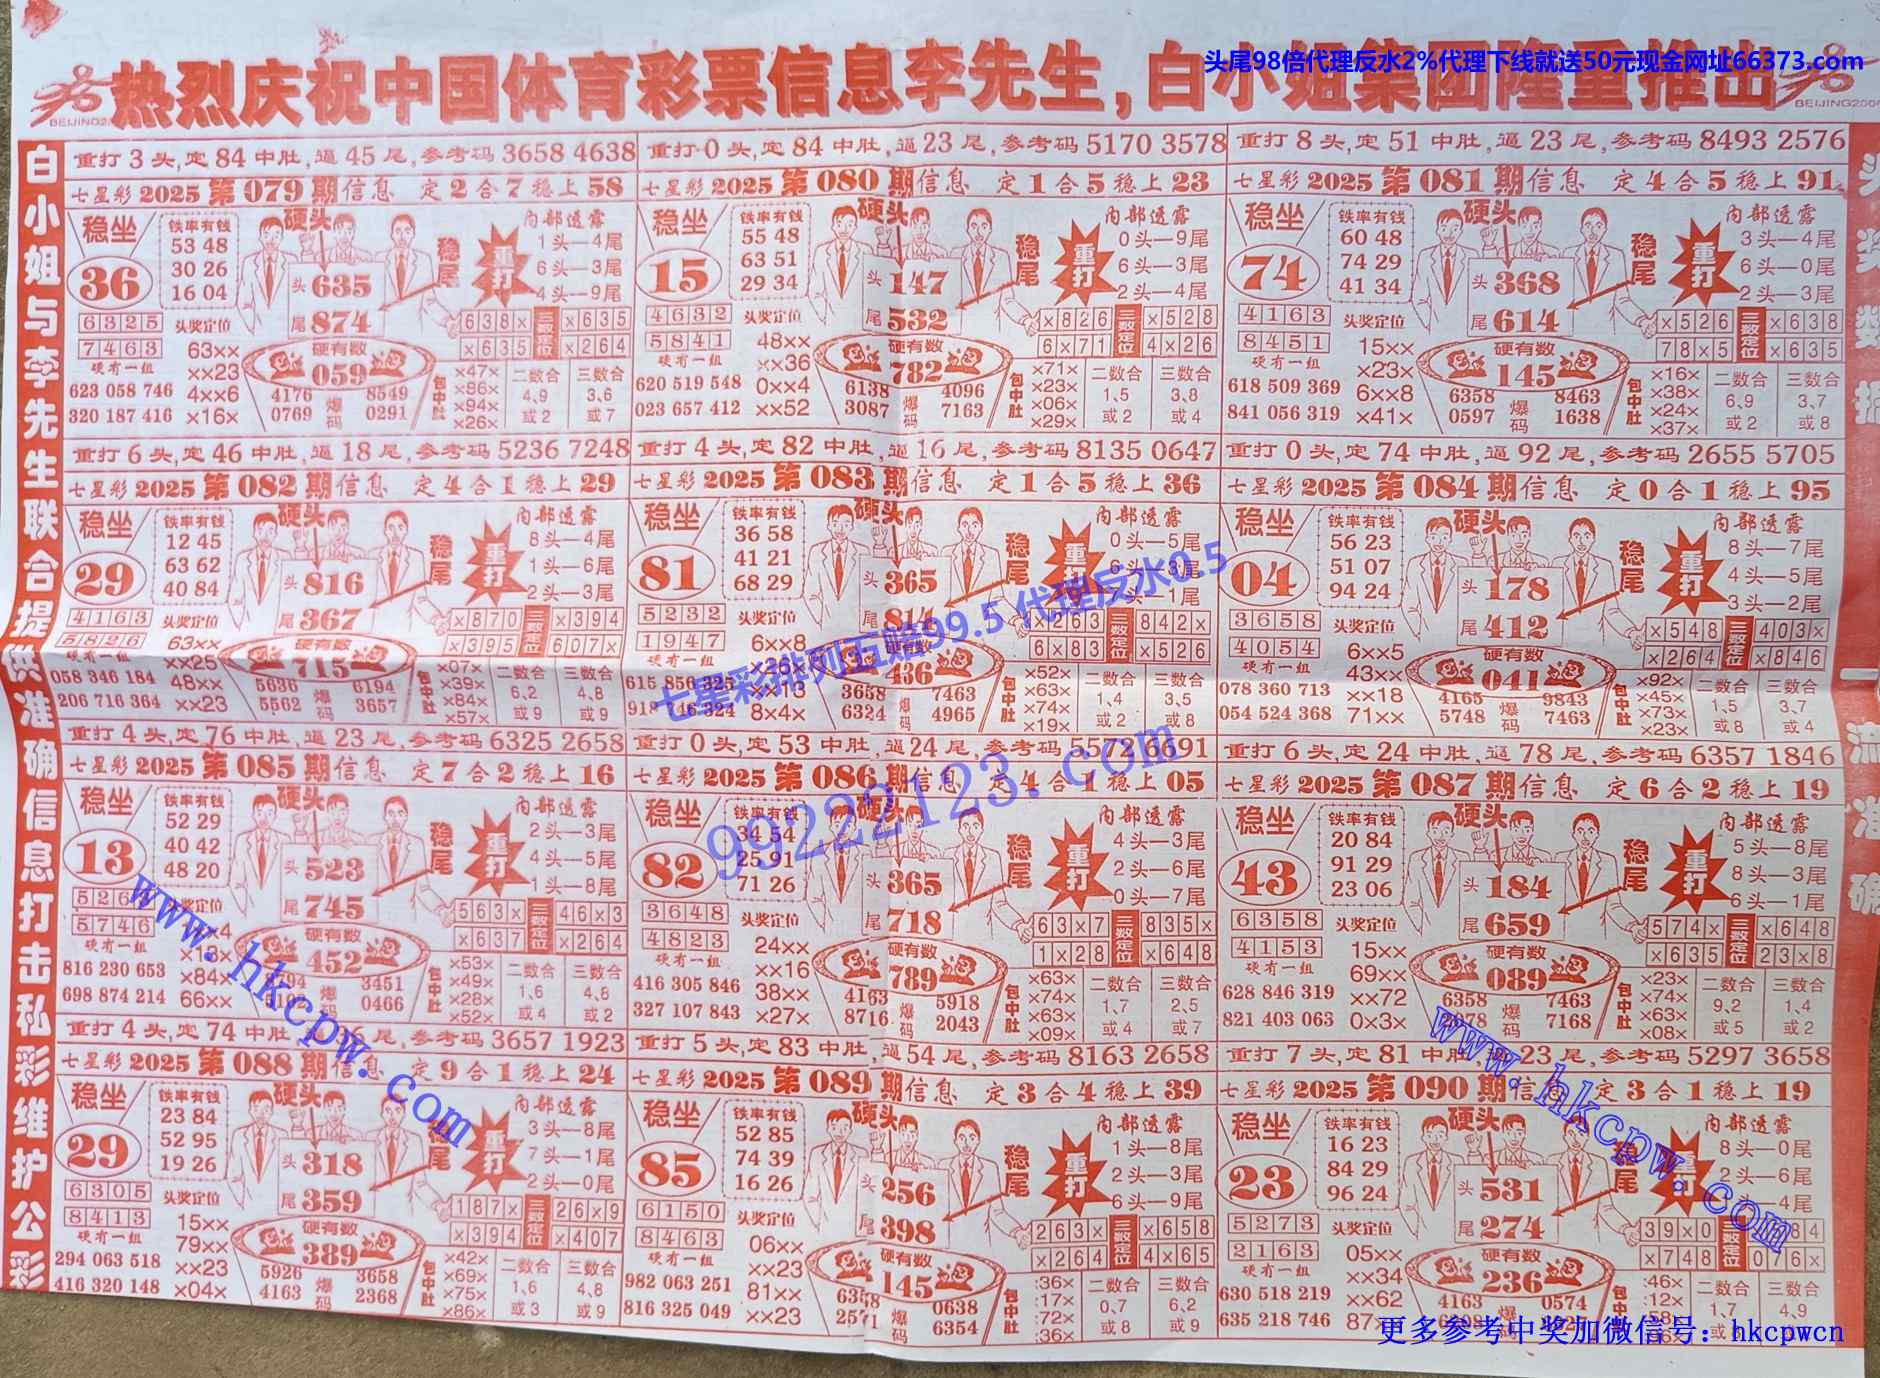 头尾98倍代理反水2%代理下线就送50元现金网址66373.com
热烈庆祝中国体育彩票信息李先生,白小姐集团隆重推出
白小姐与李先生联合提供准确信息打击私彩维护公彩
重打 3 头,定 84 中肚,逼 45 尾,参考码 3658 4638
七星彩 2025 第 079 期信息 定 2 合 7 稳上 58
稳坐 36
铁率有钱
53 48
30 26
16 04
硬头
头 635
尾 874
稳尾
重打
内部透露
1头—4尾
6头—3尾
4头—9尾
6325
7463
头奖定位
63××
××23
4××6
×16×
硬有一组
623 058 746
320 187 416
硬有数
059
4176 爆码 8549
0769 0291
638× 三数定位 ×635
×635 ×264
包中肚
×47×
×86×
×94×
×26×
二数合
4,9
或2
三数合
3,6
或7
重打 0 头,定 84 中肚,逼 23 尾,参考码 5170 3578
七星彩 2025 第 080 期信息 定 1 合 5 稳上 23
稳坐 15
铁率有钱
55 48
63 51
29 34
硬头
头 147
尾 532
稳尾
重打
内部透露
0头—9尾
6头—3尾
2头—4尾
4632
5841
头奖定位
48××
××36
0××4
××52
硬有一组
620 519 548
023 657 412
硬有数
782
6138 爆码 4096
3087 7163
×826 三数定位 ×528
6×71 4×26
包中肚
×71×
×23×
×06×
×29×
二数合
1,5
或2
三数合
3,8
或4
重打 8 头,定 51 中肚,逼 23 尾,参考码 8493 2576
七星彩 2025 第 081 期信息 定 4 合 5 稳上 91
稳坐 74
铁率有钱
60 48
74 29
41 34
硬头
头 368
尾 614
稳尾
重打
内部透露
3头—4尾
6头—0尾
2头—3尾
4163
8451
头奖定位
15××
×23×
6××8
×41×
硬有一组
618 509 369
841 056 319
硬有数
145
6358 爆码 8463
0597 1638
×526 三数定位 ×638
78×5 ×635
包中肚
×16×
×38×
×24×
×37×
二数合
6,9
或2
三数合
3,7
或8
重打 6 头,定 46 中肚,逼 18 尾,参考码 5236 7248
七星彩 2025 第 082 期信息 定 4 合 1 稳上 29
稳坐 29
铁率有钱
12 45
63 62
40 84
硬头
头 816
尾 367
稳尾
重打
内部透露
8头—4尾
1头—6尾
2头—3尾
4163
5826
头奖定位
63××
××25
48××
××23
硬有一组
058 346 184
206 716 364
硬有数
715
5636 爆码 6194
5562 3657
×870 三数定位 ×394
×395 607×
包中肚
×07×
×39×
×84×
×57×
二数合
6,2
或9
三数合
4,8
或9
重打 4 头,定 82 中肚,逼 16 尾,参考码 8135 0647
七星彩 2025 第 083 期信息 定 1 合 5 稳上 36
稳坐 81
铁率有钱
36 58
41 21
68 29
硬头
头 365
尾
稳尾
重打
内部透露
0头—5尾
5232
1947
头奖定位
6××8
8×4×
硬有一组
硬有数
3658 爆码 7463
6324 4965
三数定位 842×
6×83 ×526
包中肚
×52×
×63×
×74×
×19×
二数合
1,4
或2
三数合
3,5
或8
重打 0 头,定 74 中肚,逼 92 尾,参考码 2655 5705
七星彩 2025 第 084 期信息 定 0 合 1 稳上 95
稳坐 04
铁率有钱
56 23
51 07
94 24
硬头
头 178
尾 412
稳尾
重打
内部透露
8头—7尾
4头—5尾
3头—2尾
3658
4054
头奖定位
6××5
43××
××18
71××
硬有一组
078 360 713
054 524 368
硬有数
041
4165 爆码 9843
5748 7463
×548 三数定位 403×
×264 ×846
包中肚
×92×
×45×
×73×
×23×
二数合
1,5
或8
三数合
3,7
或4
七星彩排列五赔99.5 代理反水0.5
99222123.com
重打 4 头,定 76 中肚,逼 23 尾,参考码 6325 2658
七星彩 2025 第 085 期信息 定 7 合 2 稳上 16
稳坐 13
铁率有钱
52 29
40 42
48 20
硬头
头 523
尾 745
稳尾
重打
内部透露
2头—3尾
4头—5尾
1头—8尾
5746
×84×
66××
硬有一组
816 230 653
698 874 214
硬有数
452
爆码 3451
0466
563× 三数定位 46×3
×637 ×264
包中肚
×53×
×49×
×28×
×52×
二数合
1,6
或4
三数合
4,8
或2
重打 0 头,定 53 中肚,逼 24 尾,参考码 5572 6691
七星彩 2025 第 086 期信息 定 4 合 1 稳上 05
稳坐 82
铁率有钱
34 54
25 91
71 26
硬头
头 365
尾 718
稳尾
重打
内部透露
4头—3尾
2头—6尾
0头—7尾
3648
4823
头奖定位
24××
××16
38××
×27×
硬有一组
416 305 846
327 107 843
硬有数
789
4163 爆码 5918
8716 2043
63×7 三数定位 835×
1×28 ×648
包中肚
×63×
×74×
×63×
×09×
二数合
1,7
或4
三数合
2,5
或7
重打 6 头,定 24 中肚,逼 78 尾,参考码 6357 1846
七星彩 2025 第 087 期信息 定 6 合 2 稳上 19
稳坐 43
铁率有钱
20 84
91 29
23 06
硬头
头 184
尾 659
稳尾
重打
内部透露
5头—8尾
8头—3尾
6头—1尾
6358
4153
头奖定位
15××
69××
××72
0×3×
硬有一组
628 846 319
821 403 063
硬有数
089
6358 爆码 7463
7168
574× 三数定位 ×648
×635 23×8
包中肚
×23×
×74×
×63×
×08×
二数合
9,2
或5
三数合
1,4
或2
www.hkcpw.com
www.hkcpw.com
重打 4 头,定 74 中肚, 尾,参考码 3657 1923
七星彩 2025 第 088 期信息 定 9 合 1 稳上 24
稳坐 29
铁率有钱
23 84
52 95
19 26
硬头
头 318
尾 359
重打
内部透露
3头—8尾
7头—1尾
2头—0尾
6305
8413
头奖定位
15××
79××
××23
×04×
硬有一组
294 063 518
416 320 148
硬有数
389
5926 爆码 3658
4163 2368
187× 三数定位 26×9
×394 ×407
包中肚
×42×
×69×
×75×
×86×
二数合
1,6
或3
三数合
4,8
或9
重打 5 头,定 83 中肚,逼 54 尾,参考码 8163 2658
七星彩 2025 第 089 期信息 定 3 合 4 稳上 39
稳坐 85
铁率有钱
52 85
74 39
16 26
硬头
头 256
尾 398
稳尾
重打
内部透露
1头—8尾
2头—3尾
6头—9尾
6150
8463
头奖定位
06××
××23
81××
××23
硬有一组
982 063 251
816 325 049
硬有数
145
6358 爆码 0638
2571 6354
263× 三数定位 ×658
×264 4×65
包中肚
:36×
:17×
:72×
:36×
二数合
0,7
或8
三数合
6,2
或9
重打 7 头,定 81 中肚, 23 尾,参考码 5297 3658
七星彩 2025 第 090 期信息 定 3 合 1 稳上 19
稳坐 23
铁率有钱
16 23
84 29
96 24
硬头
头 531
尾 274
内部透露
8头—0尾
2头—6尾
头—4尾
5273
2163
头奖定位
05××
××34
××62
硬有一组
630 518 219
635 218 746
硬有数
236
4163 0574
39×0 三数定位
×748 076×
:46×
:12×
二数合
1,7
三数合
4,9
更多参考中奖加微信号：hkcpwcn